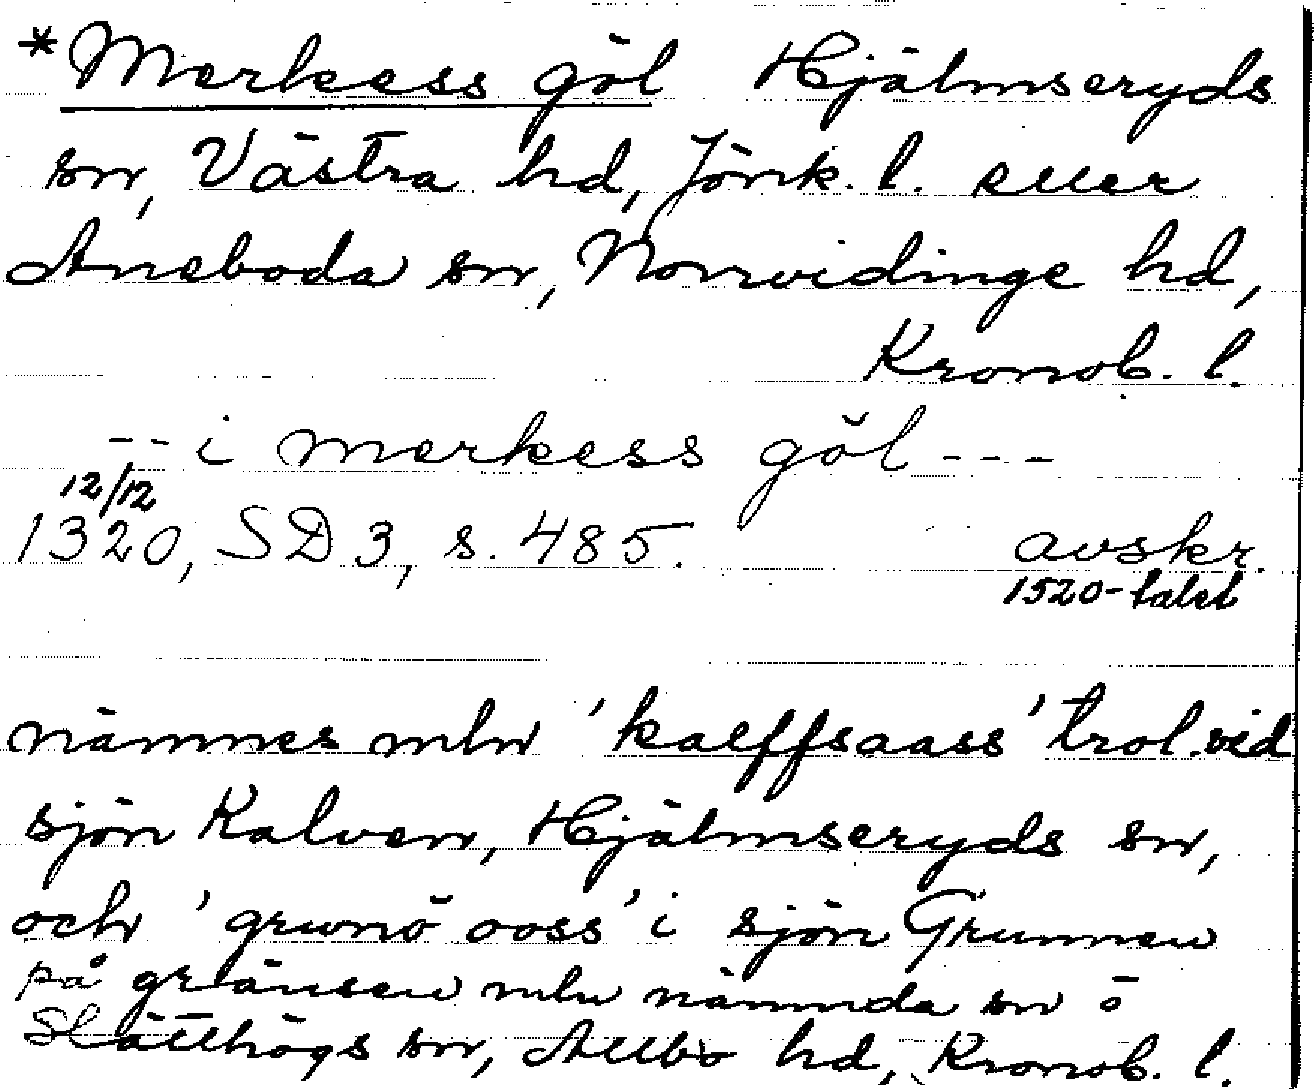 *Merkess göl Hjälmseryds
sn, Västra hd, Jönk. l. eller
Aneboda sn, Norrvidinge hd,
Kronob. l.
-- i merkess göl ---
12/12
1320, SD 3, s. 485. avskr.
1520-talet
nämnes mln 'kalffsaass' trol. vid
sjön Kalven, Hjälmseryds sn,
och 'grunö ooss' i sjön Grunnen
på gränsen mln nämnda sn o
Slätthögs sn, Allbo hd, Kronob. l.